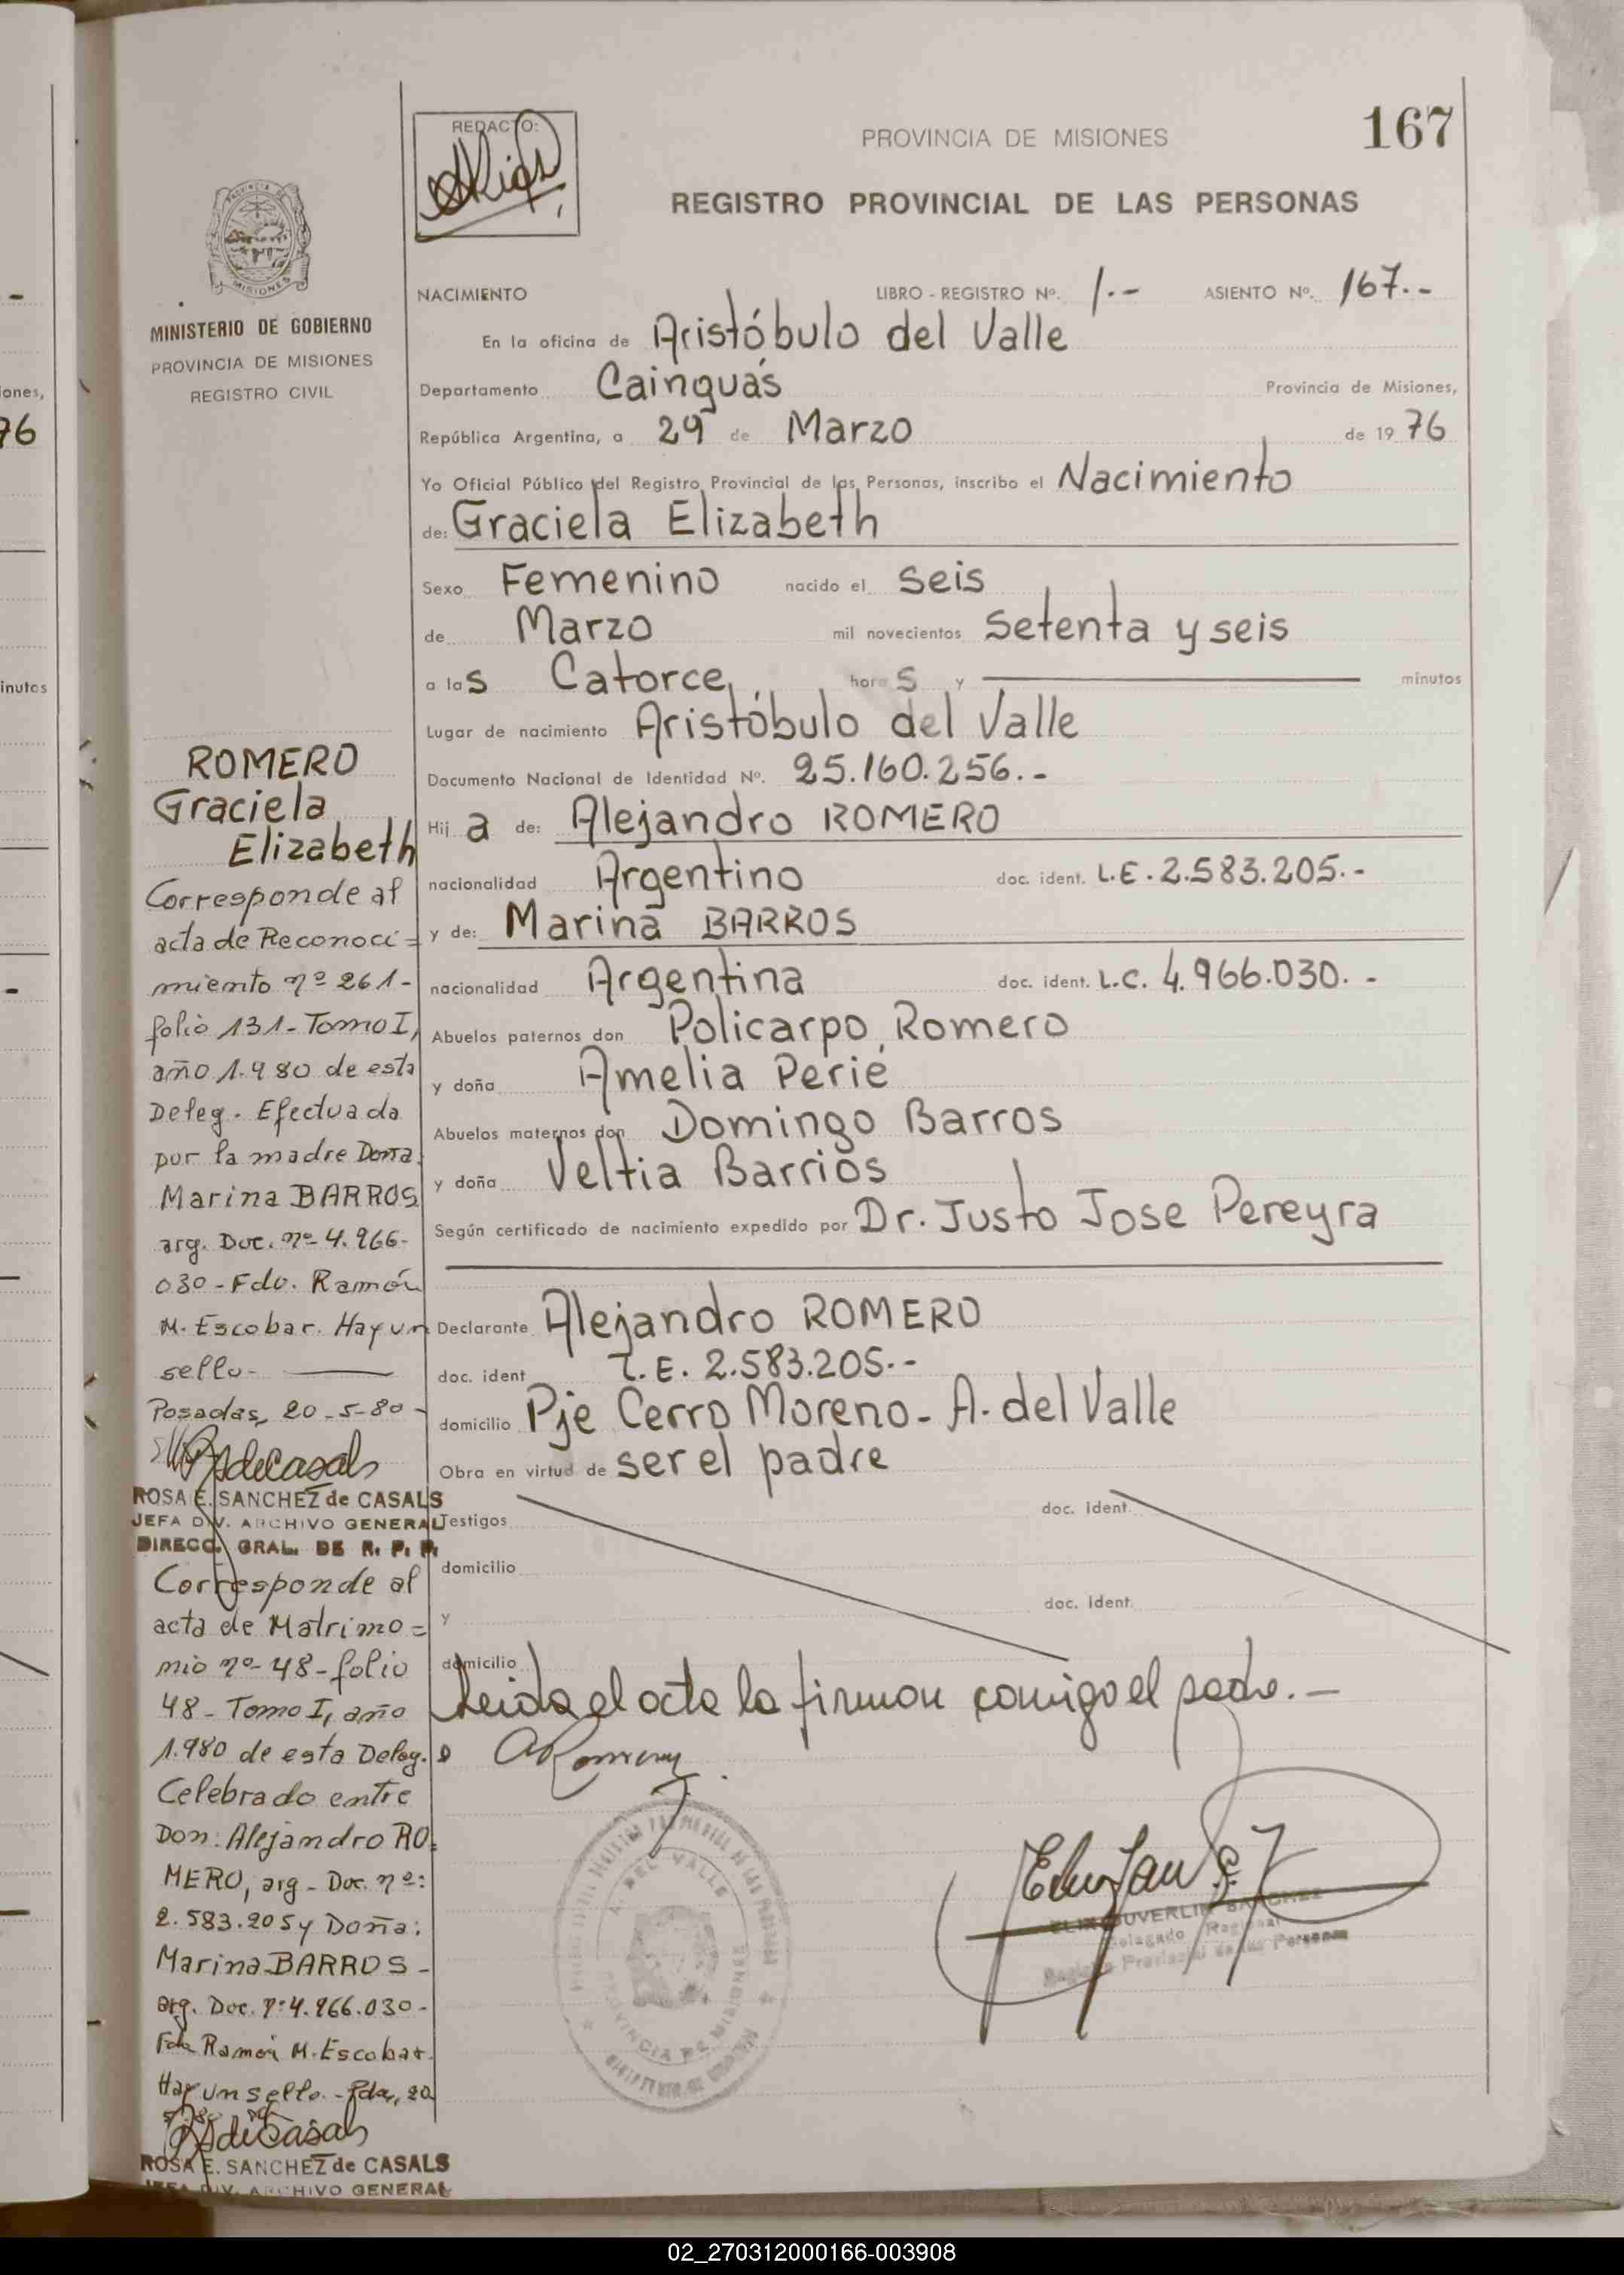 167
REDACTO:
PROVINCIA DE MISIONES
REGISTRO PROVINCIAL DE LAS PERSONAS
MISIONES
MINISTERIO DE GOBIERNO
PROVINCIA DE MISIONES
REGISTRO CIVIL
NACIMIENTO LIBRO - REGISTRO Nº. 1.- ASIENTO Nº. 167.-
En la oficina de Aristóbulo del Valle
Departamento Cainguás Provincia de Misiones,
República Argentina, a 29 de Marzo de 1976
Yo Oficial Público del Registro Provincial de las Personas, inscribo el Nacimiento
de: Graciela Elizabeth
Sexo Femenino nacido el seis
de Marzo mil novecientos setenta y seis
a las Catorce horas y minutos
Lugar de nacimiento Aristóbulo del Valle
Documento Nacional de Identidad Nº. 25.160.256.-
Hija de: Alejandro ROMERO
nacionalidad Argentino doc. ident. L.E. 2.583.205.-
y de: Marina BARROS
nacionalidad Argentina doc. ident. L.C. 4.966.030.-
Abuelos paternos don Policarpo Romero
y doña Amelia Perié
Abuelos maternos don Domingo Barros
y doña Veltia Barrios
Según certificado de nacimiento expedido por Dr. Justo Jose Pereyra
Declarante Alejandro ROMERO
doc. ident L.E. 2.583.205.-
domicilio Pje Cerro Moreno - A. del Valle
Obra en virtud de ser el padre
Testigos doc. ident.
domicilio
y doc. ident.
domicilio
Leida el acta la firman conmigo el padre.-
ROMERO
Graciela
Elizabeth
Corresponde al
acta de Reconoci=
miento nº 261-
folio 131-Tomo I,
año 1.980 de esta
Deleg. Efectuada
por la madre Doña
Marina BARROS
arg. Doc. nº 4.966-
030-Fdo. Ramón
M. Escobar. Hay un
sello-
Posadas, 20-5-80-
ROSA E. SANCHEZ de CASALS
JEFA DIV. ARCHIVO GENERAL
DIRECC. GRAL. DE R. P. P.
Corresponde al
acta de Matrimo=
nio nº 48-folio
48-Tomo I, año
1.980 de esta Deleg.
Celebrado entre
Don: Alejandro RO=
MERO, arg-Doc. nº:
2.583.205 y Doña:
Marina BARROS-
arg. Doc. nº 4.966.030-
Fdo Ramón M. Escobar.
Hay un sello.-Pdas, 20
ROSA E. SANCHEZ de CASALS
JEFA DIV. ARCHIVO GENERAL
A. DEL VALLE
PROVINCIA DE MISIONES
SANCHEZ
Delegado Regional
Registro Provincial de las Personas
iones,
76
inutos
02_270312000166-003908